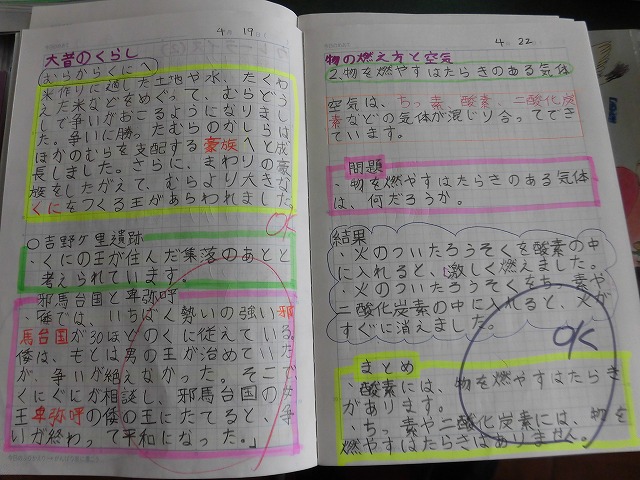 4月 19日
大昔のくらし
むらからくにへ
米作りに適した土地や水、たくわ
えた米などをめぐって、むらどう
しで争いがおこるようになりまし
た。争いに勝ったむらのかしらは
ほかのむらを支配する豪族へと成
長しました。さらに、まわりの豪
族をしたがえて、むらより大きな
くにをつくる王があらわれました。
OK
○吉野ヶ里遺跡
・くにの王が住んだ集落のあとと
考えられています。
邪馬台国と卑弥呼
では、いちばん勢いの強い邪
馬台国が30ほどのくに従えている。
倭は、もとは男の王が治めていた
が、争いが絶えなかった。そこで、
くにぐにが相談し、邪馬台国の女
王卑弥呼の倭の王にたてると、争
いが終わって平和になった。」
4月 22
物の燃え方と空気
2.物を燃やすはたらきのある気体
空気は、ちっ素、酸素、二酸化炭
素などの気体が混じり合ってでき
ています。
問題
・物を燃やすはたらきのある気体
は、何だろうか。
結果
・火のついたろうそくを酸素の中
に入れると、激しく燃えました。
・火のついたろうそくをちっ素や
二酸化炭素の中に入れると、火が
すぐに消えました。
OK
まとめ
・酸素には、物を燃やすはたらき
があります。
・ちっ素や二酸化炭素には、物を
燃やすはたらきはありません。